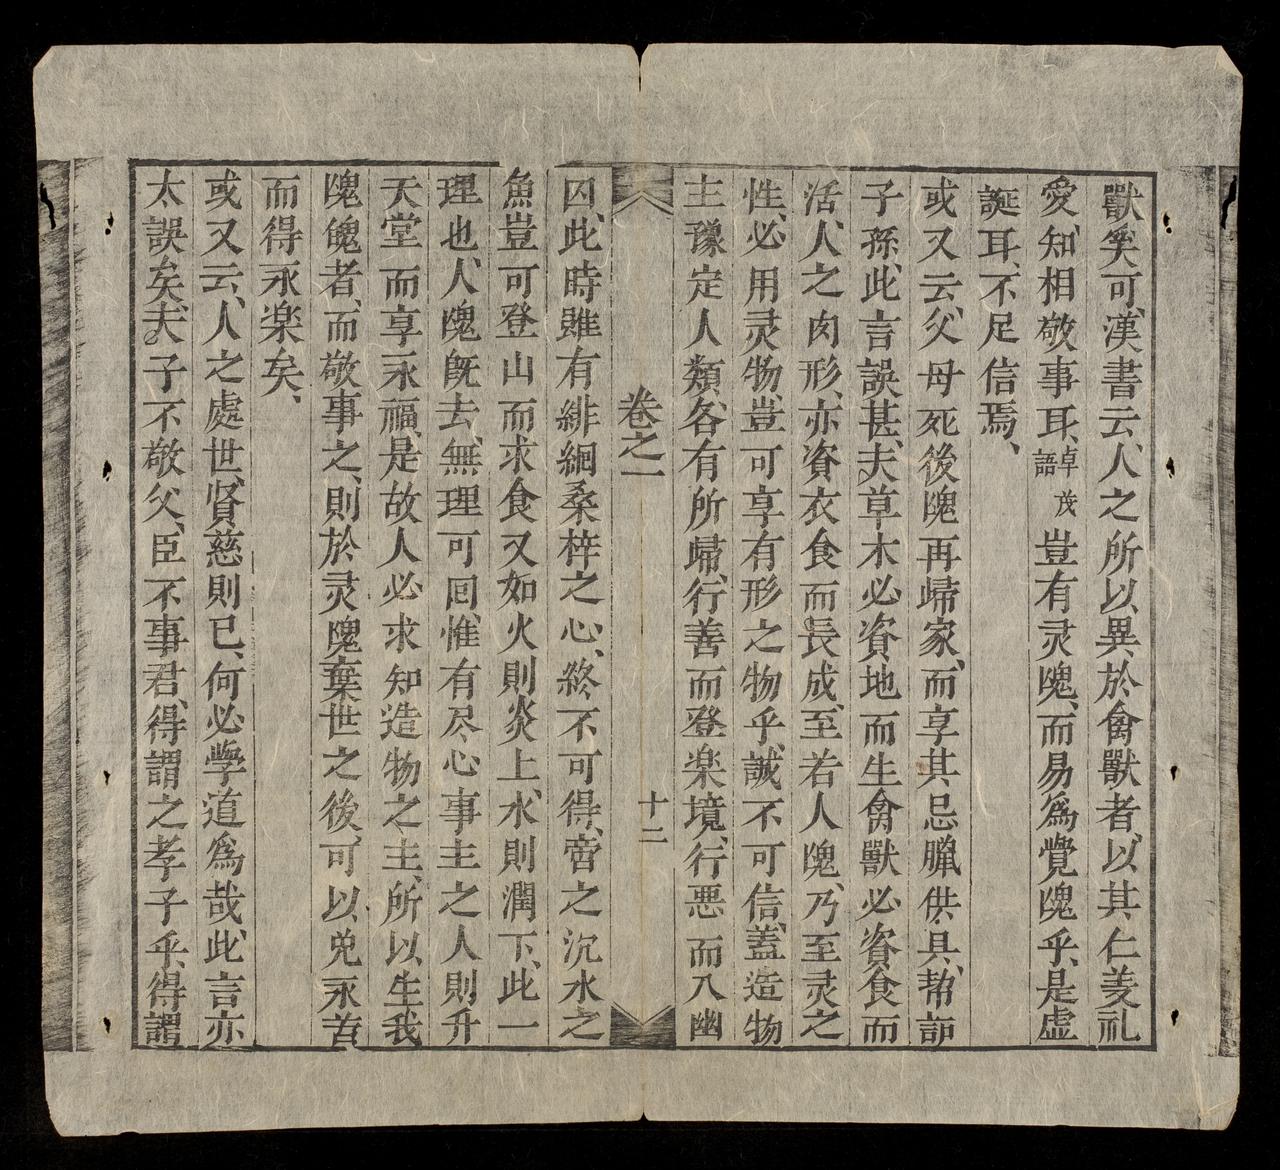 獸奚可、漢書云、人之所以異於禽獸者、以其仁義礼
愛、知相敬事耳、卓茂語豈有灵䰟、而易為覺䰟乎、是虛
誕耳、不足信焉、
或又云、父母死後䰟再歸家、而享其忌臘供具、幇䛠
子孫、此言誤甚、夫草木必資地而生禽獸必資食而
活、人之肉形、亦資衣食而長成、至若人䰟、乃至灵之
性、必用灵物、豈可享有形之物乎、誠不可信、蓋造物
主豫定人類、各有所歸、行善而登楽境、行悪而入幽
卷之一
十二
囚、此時雖有緋絪桑梓之心、終不可得、啻之沉水之
魚豈可登山而求食又如火則炎上、水則潤下、此一
理也、人䰟既去、無理可回、惟有尽心事主之人則升
天堂而享永福、是故人必求知造物之主、所以生我
䰟䰟者、而敬事之、則於灵䰟棄世之後、可以免永苦
而得永楽矣、
或又云、人之處世、賢慈則已、何必學道為哉、此言亦
太誤矣、夫子不敬父、臣不事君、得謂之孝子乎、得謂